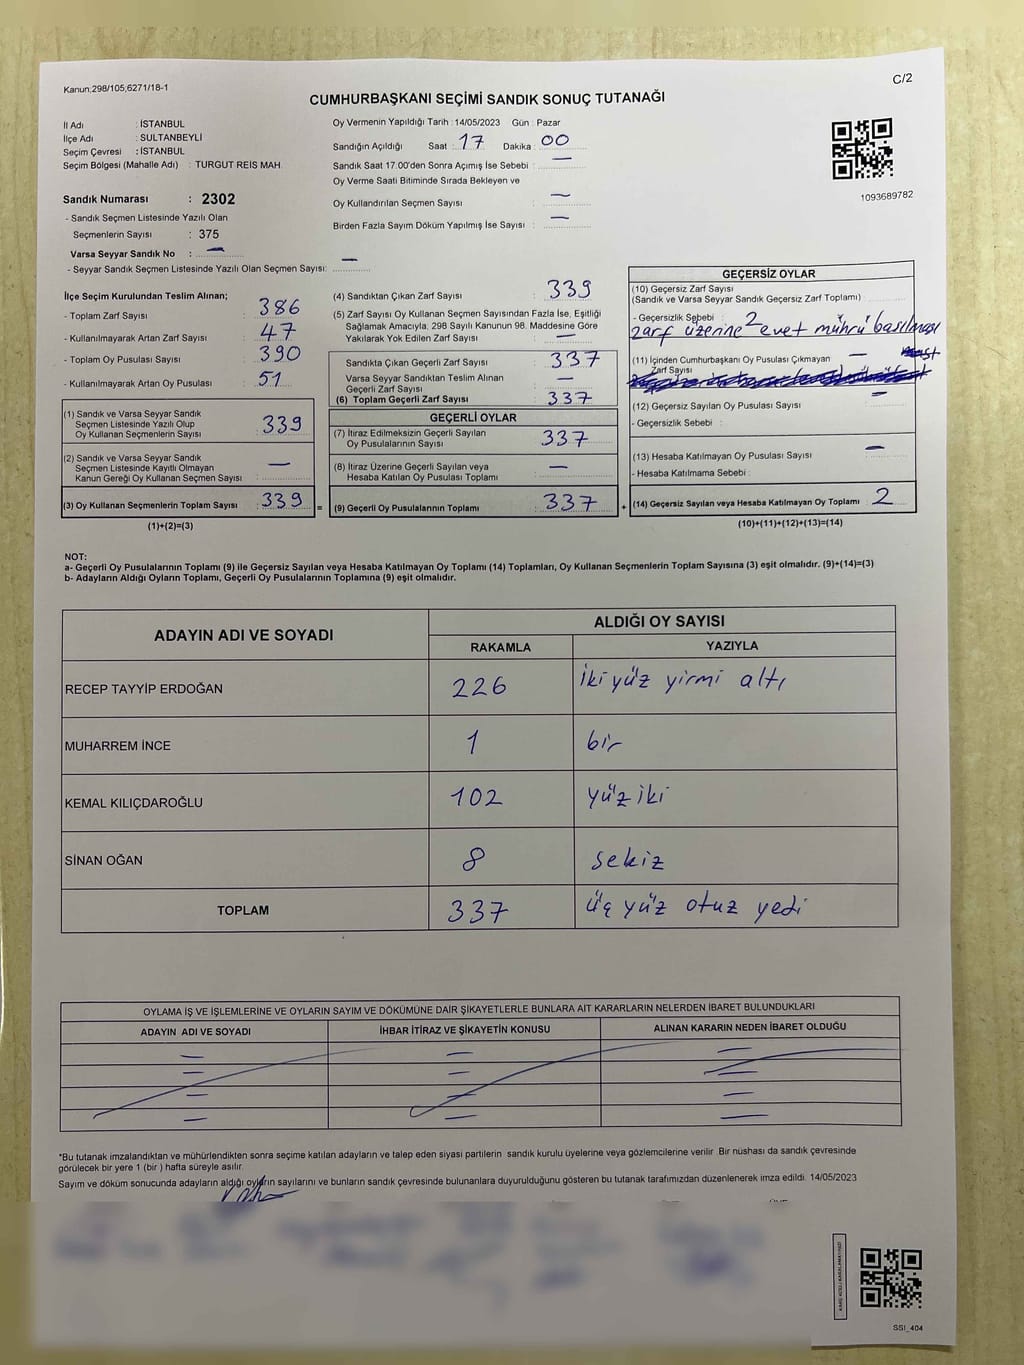 Kanun;298/105;6271/18-1
C/2
CUMHURBAŞKANI SEÇİMİ SANDIK SONUÇ TUTANAĞI
İl Adı : İSTANBUL
İlçe Adı : SULTANBEYLİ
Seçim Çevresi : İSTANBUL
Seçim Bölgesi (Mahalle Adı) : TURGUT REİS MAH.
Sandık Numarası : 2302
- Sandık Seçmen Listesinde Yazılı Olan
Seçmenlerin Sayısı : 375
Varsa Seyyar Sandık No : —
- Seyyar Sandık Seçmen Listesinde Yazılı Olan Seçmen Sayısı: —
Oy Vermenin Yapıldığı Tarih : 14/05/2023 Gün : Pazar
Sandığın Açıldığı Saat : 17 Dakika : 00
Sandık Saat 17.00'den Sonra Açımış İse Sebebi : —
Oy Verme Saati Bitiminde Sırada Bekleyen ve
Oy Kullandırılan Seçmen Sayısı : —
Birden Fazla Sayım Döküm Yapılmış İse Sayısı : —
1093689782
İlçe Seçim Kurulundan Teslim Alınan;
- Toplam Zarf Sayısı : 386
- Kullanılmayarak Artan Zarf Sayısı : 47
- Toplam Oy Pusulası Sayısı : 390
- Kullanılmayarak Artan Oy Pusulası : 51
(1) Sandık ve Varsa Seyyar Sandık
Seçmen Listesinde Yazılı Olup
Oy Kullanan Seçmenlerin Sayısı : 339
(2) Sandık ve Varsa Seyyar Sandık
Seçmen Listesinde Kayıtlı Olmayan
Kanun Gereği Oy Kullanan Seçmen Sayısı : —
(3) Oy Kullanan Seçmenlerin Toplam Sayısı : 339 =
(1)+(2)=(3)
(4) Sandıktan Çıkan Zarf Sayısı : 339
(5) Zarf Sayısı Oy Kullanan Seçmen Sayısından Fazla İse, Eşitliği
Sağlamak Amacıyla; 298 Sayılı Kanunun 98. Maddesine Göre
Yakılarak Yok Edilen Zarf Sayısı : —
Sandıkta Çıkan Geçerli Zarf Sayısı : 337
Varsa Seyyar Sandıktan Teslim Alınan
Geçerli Zarf Sayısı : —
(6) Toplam Geçerli Zarf Sayısı : 337
GEÇERLİ OYLAR
(7) İtiraz Edilmeksizin Geçerli Sayılan
Oy Pusulalarının Sayısı : 337
(8) İtiraz Üzerine Geçerli Sayılan veya
Hesaba Katılan Oy Pusulası Toplamı : —
(9) Geçerli Oy Pusulalarının Toplamı : 337 +
GEÇERSİZ OYLAR
(10) Geçersiz Zarf Sayısı
(Sandık ve Varsa Seyyar Sandık Geçersiz Zarf Toplamı) :
- Geçersizlik Sebebi : 2
zarf üzerine evet mührü basılması
(11) İçinden Cumhurbaşkanı Oy Pusulası Çıkmayan —
Zarf Sayısı
(12) Geçersiz Sayılan Oy Pusulası Sayısı : —
- Geçersizlik Sebebi :
(13) Hesaba Katılmayan Oy Pusulası Sayısı : —
- Hesaba Katılmama Sebebi :
(14) Geçersiz Sayılan veya Hesaba Katılmayan Oy Toplamı : 2
(10)+(11)+(12)+(13)=(14)
NOT:
a- Geçerli Oy Pusulalarının Toplamı (9) ile Geçersiz Sayılan veya Hesaba Katılmayan Oy Toplamı (14) Toplamları, Oy Kullanan Seçmenlerin Toplam Sayısına (3) eşit olmalıdır. (9)+(14)=(3)
b- Adayların Aldığı Oyların Toplamı, Geçerli Oy Pusulalarının Toplamına (9) eşit olmalıdır.
ADAYIN ADI VE SOYADI
ALDIĞI OY SAYISI
RAKAMLA YAZIYLA
RECEP TAYYİP ERDOĞAN 226 iki yüz yirmi altı
MUHARREM İNCE 1 bir
KEMAL KILIÇDAROĞLU 102 yüz iki
SİNAN OĞAN 8 sekiz
TOPLAM 337 üç yüz otuz yedi
OYLAMA İŞ VE İŞLEMLERİNE VE OYLARIN SAYIM VE DÖKÜMÜNE DAİR ŞİKAYETLERLE BUNLARA AİT KARARLARIN NELERDEN İBARET BULUNDUKLARI
ADAYIN ADI VE SOYADI İHBAR İTİRAZ VE ŞİKAYETİN KONUSU ALINAN KARARIN NEDEN İBARET OLDUĞU
*Bu tutanak imzalandıktan ve mühürlendikten sonra seçime katılan adayların ve talep eden siyasi partilerin sandık kurulu üyelerine veya gözlemcilerine verilir. Bir nüshası da sandık çevresinde
görülecek bir yere 1 (bir ) hafta süreyle asılır.
Sayım ve döküm sonucunda adayların aldığı oyların sayılarını ve bunların sandık çevresinde bulunanlara duyurulduğunu gösteren bu tutanak tarafımızdan düzenlenerek imza edildi. 14/05/2023
SSI_404